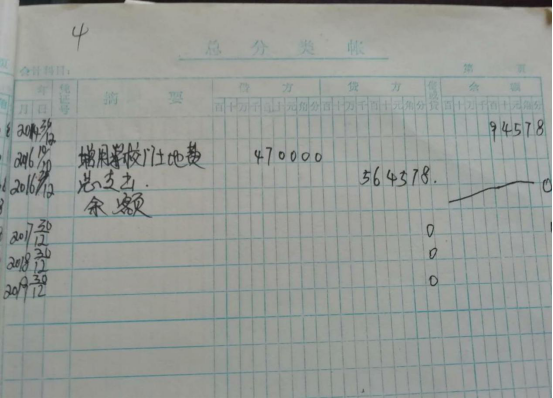 4
总分类帐
会计科目:
第 页
年 凭证号 摘要 借方 贷方 借或贷 余额
月 日 百十万千百十元角分 百十万千百十元角分 百十万千百十元角分
2014 30/12 94578
2016 学校门土地费 470000
2016 /12 总支出. 564578.
余额 0
2017 30/12 0
2018 30/12 0
2019 30/12 0